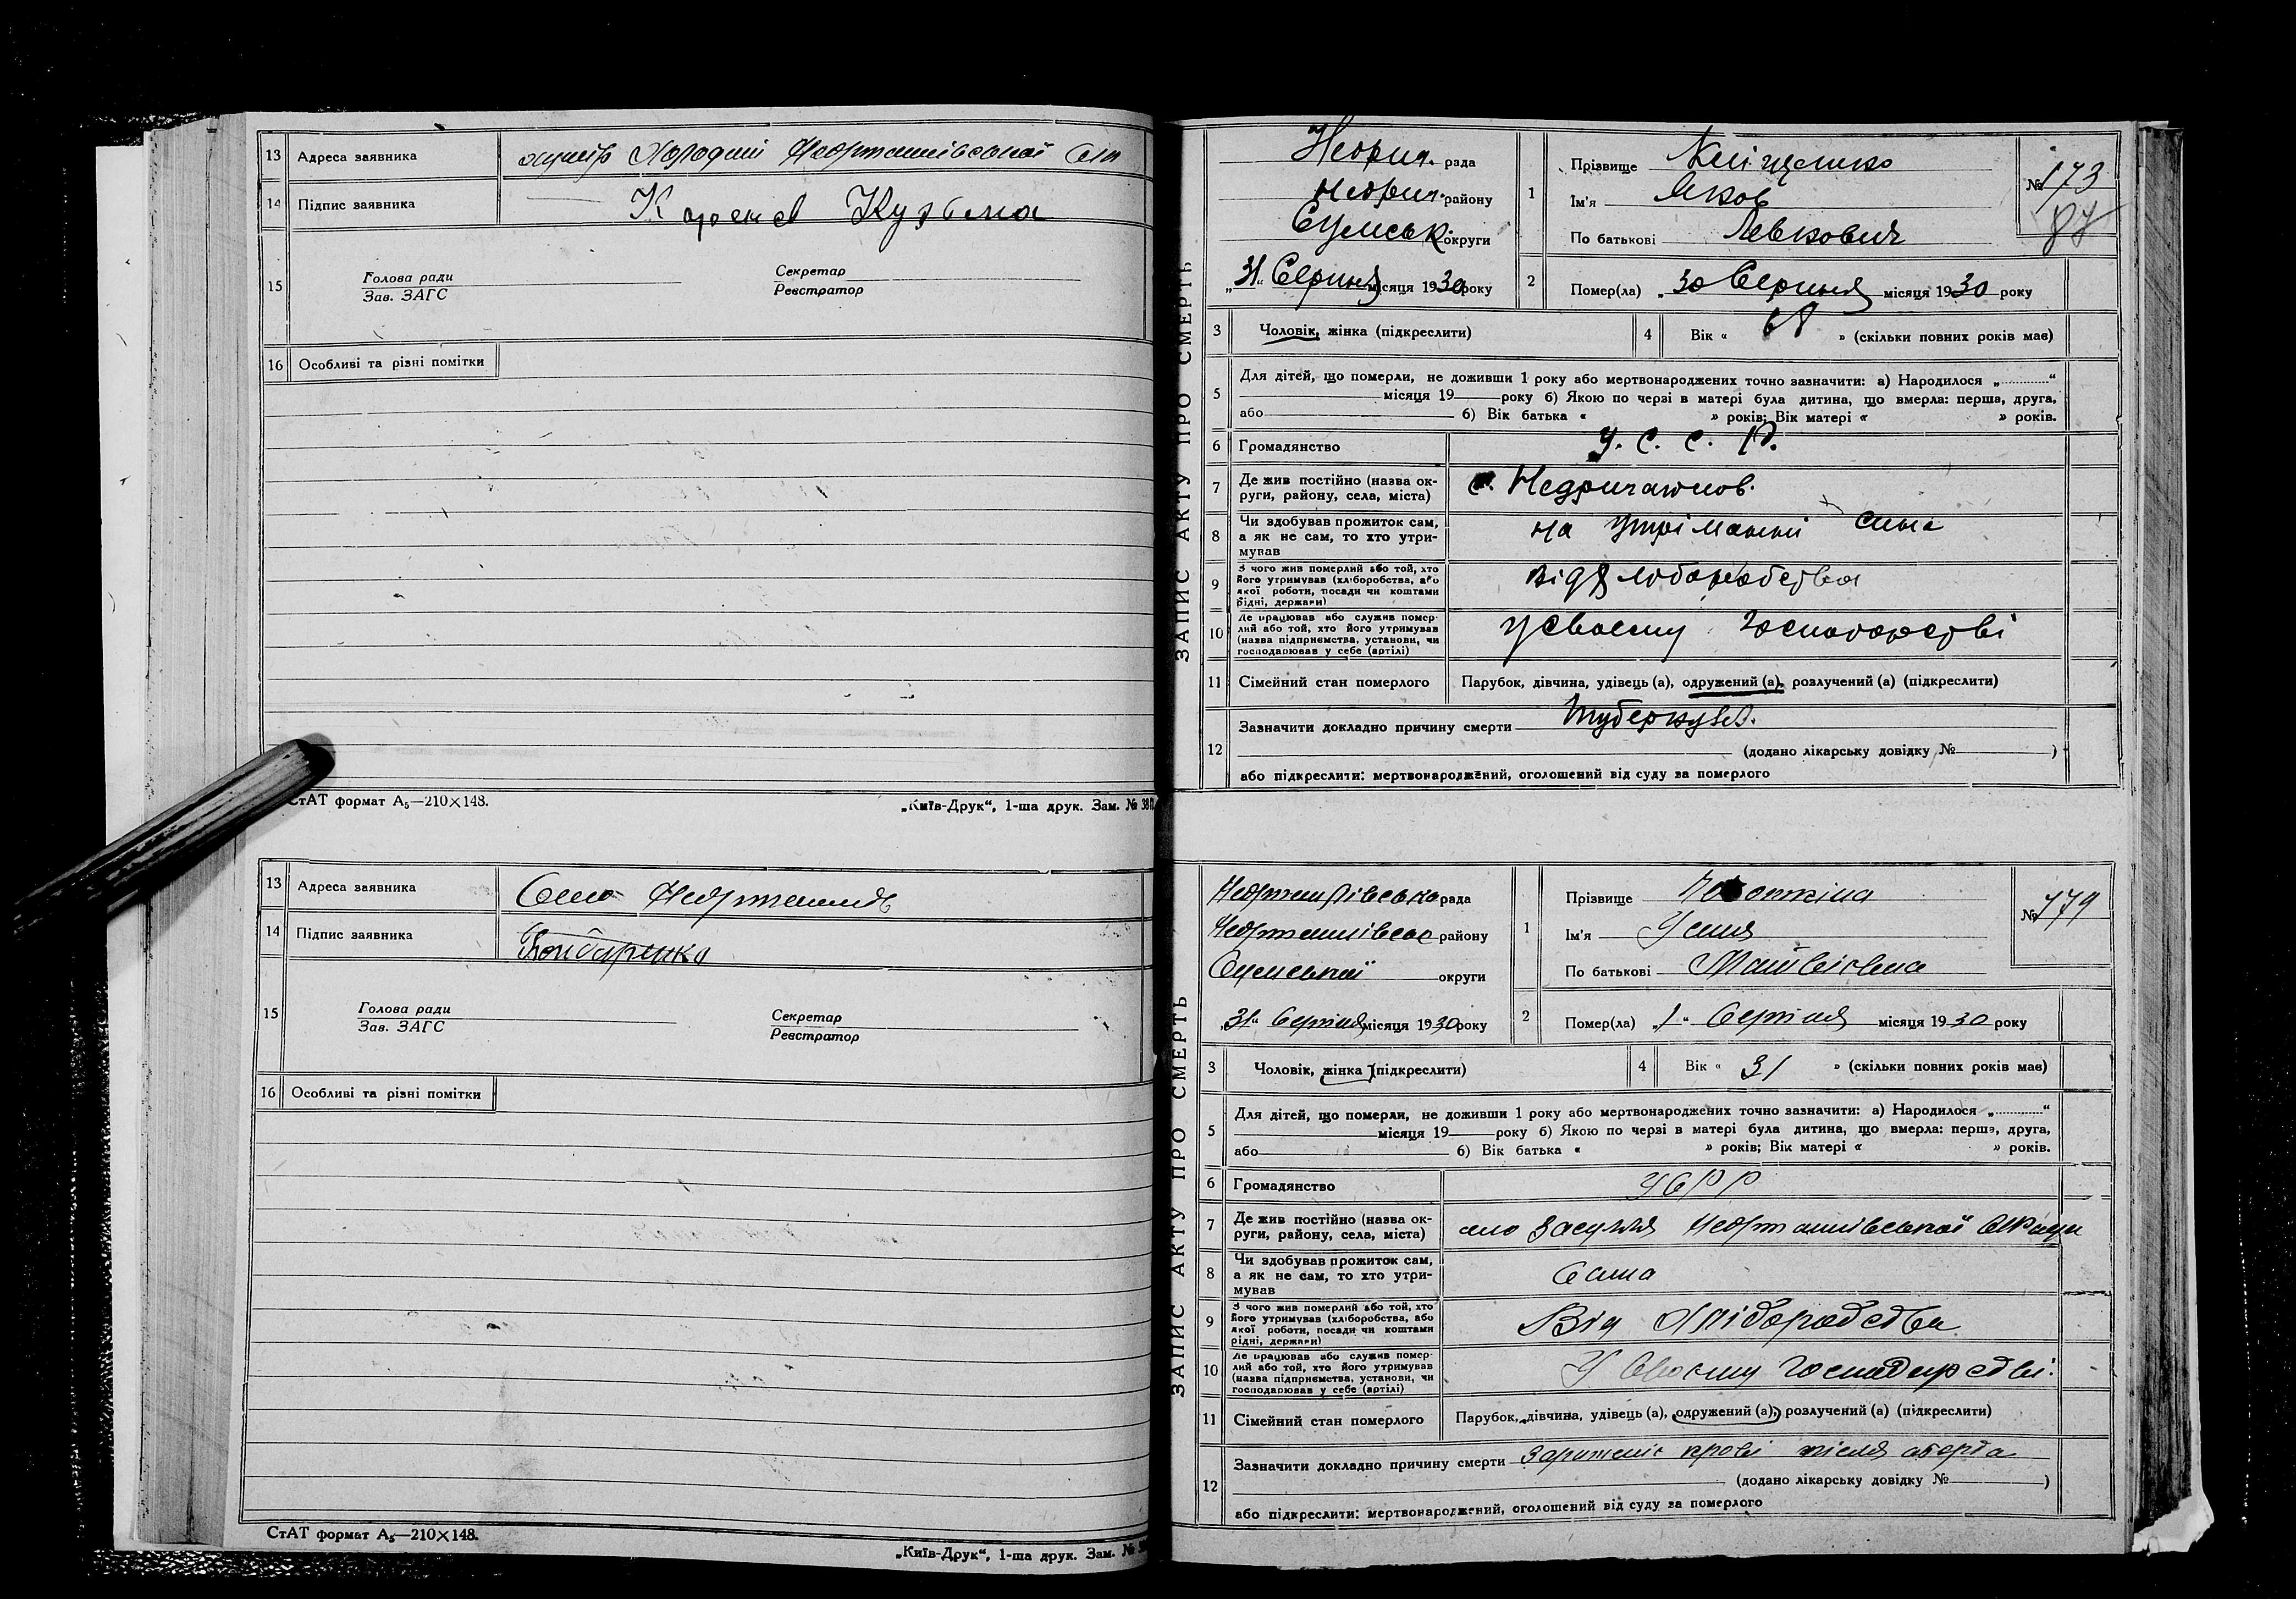 13 Адреса заявника
14 Підпис заявника Кузьма
15 Голова ради Секретар
Зав. ЗАГС Реєстратор
16 Особливі та різні помітки
СтАТ формат А₅—210×148. „Київ-Друк“, 1-ша друк. Зам. №
13 Адреса заявника Село
14 Підпис заявника Бондаренко
15 Голова ради Секретар
Зав. ЗАГС Реєстратор
16 Особливі та різні помітки
СтАТ формат А₅—210×148.
„Київ-Друк“, 1-ша друк. Зам. №
ЗАПИС АКТУ ПРО СМЕРТЬ
Недриг. рада
Недриг. району
Сумськ. округи
„31“ Серпня місяця 1930 року
1 Прізвище
Ім'я Яков
По батькові Левкович
№ 173
87
2 Помер(ла) „30 Серпня місяця 1930 року
3 Чоловік, жінка (підкреслити)
4 Вік « 68 » (скільки повних років має)
5 Для дітей, що померли, не доживши 1 року або мертвонароджених точно зазначити: а) Народилося „............“
місяця 19 року б) Якою по черзі в матері була дитина, що вмерла: перша, друга,
або б) Вік батька « » років; Вік матері « » років.
6 Громадянство У. С. С. Р.
7 Де жив постійно (назва ок-
руги, району, села, міста) с.
8 Чи здобував прожиток сам,
а як не сам, то хто утри-
мував
на утріманні сина
9 З чого жив померлий або той, хто
його утримував (хліборобства, або
якої роботи, посади чи коштами
рідні, держави)
від хлборобства
10 Де працював або служив помер-
лий або той, хто його утримував
(назва підприємства, установи, чи
господарював у себе (артілі)
у своєму господарстві
11 Сімейний стан померлого Парубок, дівчина, удівець (а), одружений (а), розлучений (а) (підкреслити)
12 Зазначити докладно причину смерти Туберкульоз.
(додано лікарську довідку № )
або підкреслити: мертвонароджений, оголошений від суду за померлого
ЗАПИС АКТУ ПРО СМЕРТЬ
рада
району
Сумської округи
„31“ Серпня місяця 1930 року
1 Прізвище
Ім'я
По батькові
№ 174
2 Помер(ла) „1“ Серпня місяця 1930 року
3 Чоловік, жінка (підкреслити)
4 Вік « 31 » (скільки повних років має)
5 Для дітей, що померли, не доживши 1 року або мертвонароджених точно зазначити: а) Народилося „............“
місяця 19 року б) Якою по черзі в матері була дитина, що вмерла: перша, друга,
або б) Вік батька « » років; Вік матері « » років.
6 Громадянство УСРР
7 Де жив постійно (назва ок-
руги, району, села, міста)
село Засулля
8 Чи здобував прожиток сам,
а як не сам, то хто утри-
мував
Сама
9 З чого жив померлий або той, хто
його утримував (хліборобства, або
якої роботи, посади чи коштами
рідні, держави)
Від хліборобства
10 Де працював або служив помер-
лий або той, хто його утримував
(назва підприємства, установи, чи
господарював у себе (артілі)
У своєму господарстві.
11 Сімейний стан померлого Парубок, дівчина, удівець (а), одружений (а), розлучений (а) (підкреслити)
12 Зазначити докладно причину смерти крові після аборта
(додано лікарську довідку № )
або підкреслити: мертвонароджений, оголошений від суду за померлого